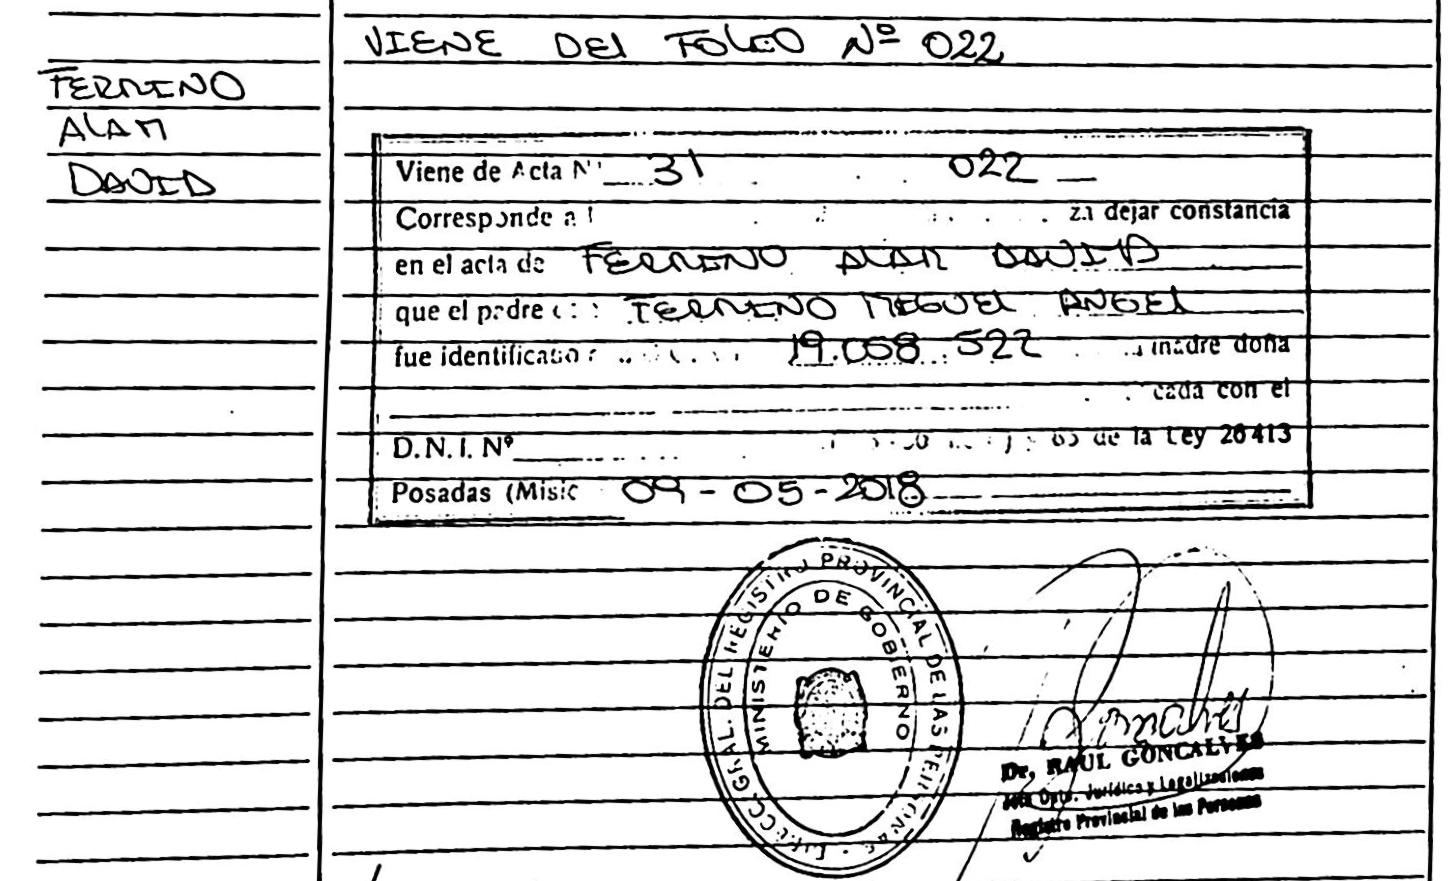 VIENE DEl FOLIO Nº 022
FERREINO
ALAM
DAVID
Viene de Acta Nº 31 022
Corresponde a za dejar constancia
en el acta de FERREINO ALAM DAVID
que el padre FERREINO MIGUEl ANGEl
fue identificado 19.058.522 madre doña
cada con el
D.N.I. Nº 65 de la Ley 26413
Posadas (Misic 09-05-2018
DIRECC. GRAL. DEL REGISTRO PROVINCIAL DE LAS PERSONAS
MINISTERIO DE GOBIERNO
Dr. RAUL GONCALVES
Jefe Dpto. Jurídica y Legalizaciones
Registro Provincial de las Personas